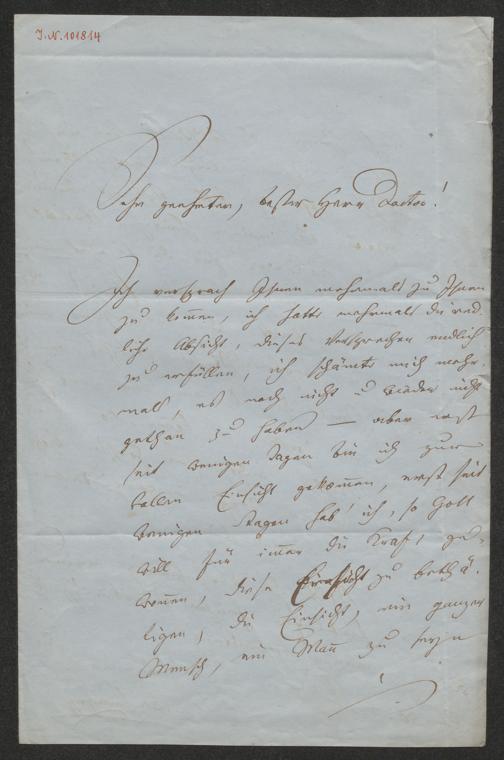 I. N. 101814
Sehr geehrter, bester Herr Doctor!
Ich versprach Ihnen mehrmals zu Ihnen
zu kommen, ich hatte mehrmals die red-
liche Absicht, dieses Versprechen endlich
zu erfüllen, ich schämte mich mehr-
mals, es noch nicht u wieder nicht
gethan zu haben — aber erst
seit wenigen Tagen bin ich zur
vollen Einsicht gekom̅en, erst seit
wenigen Tagen hab' ich, so Gott
will für immer die Kraft ge-
wonnen, diese Einsicht zu bethä-
tigen, die Einsicht, ein ganzer
Mensch, ein Man̅ zu seyn